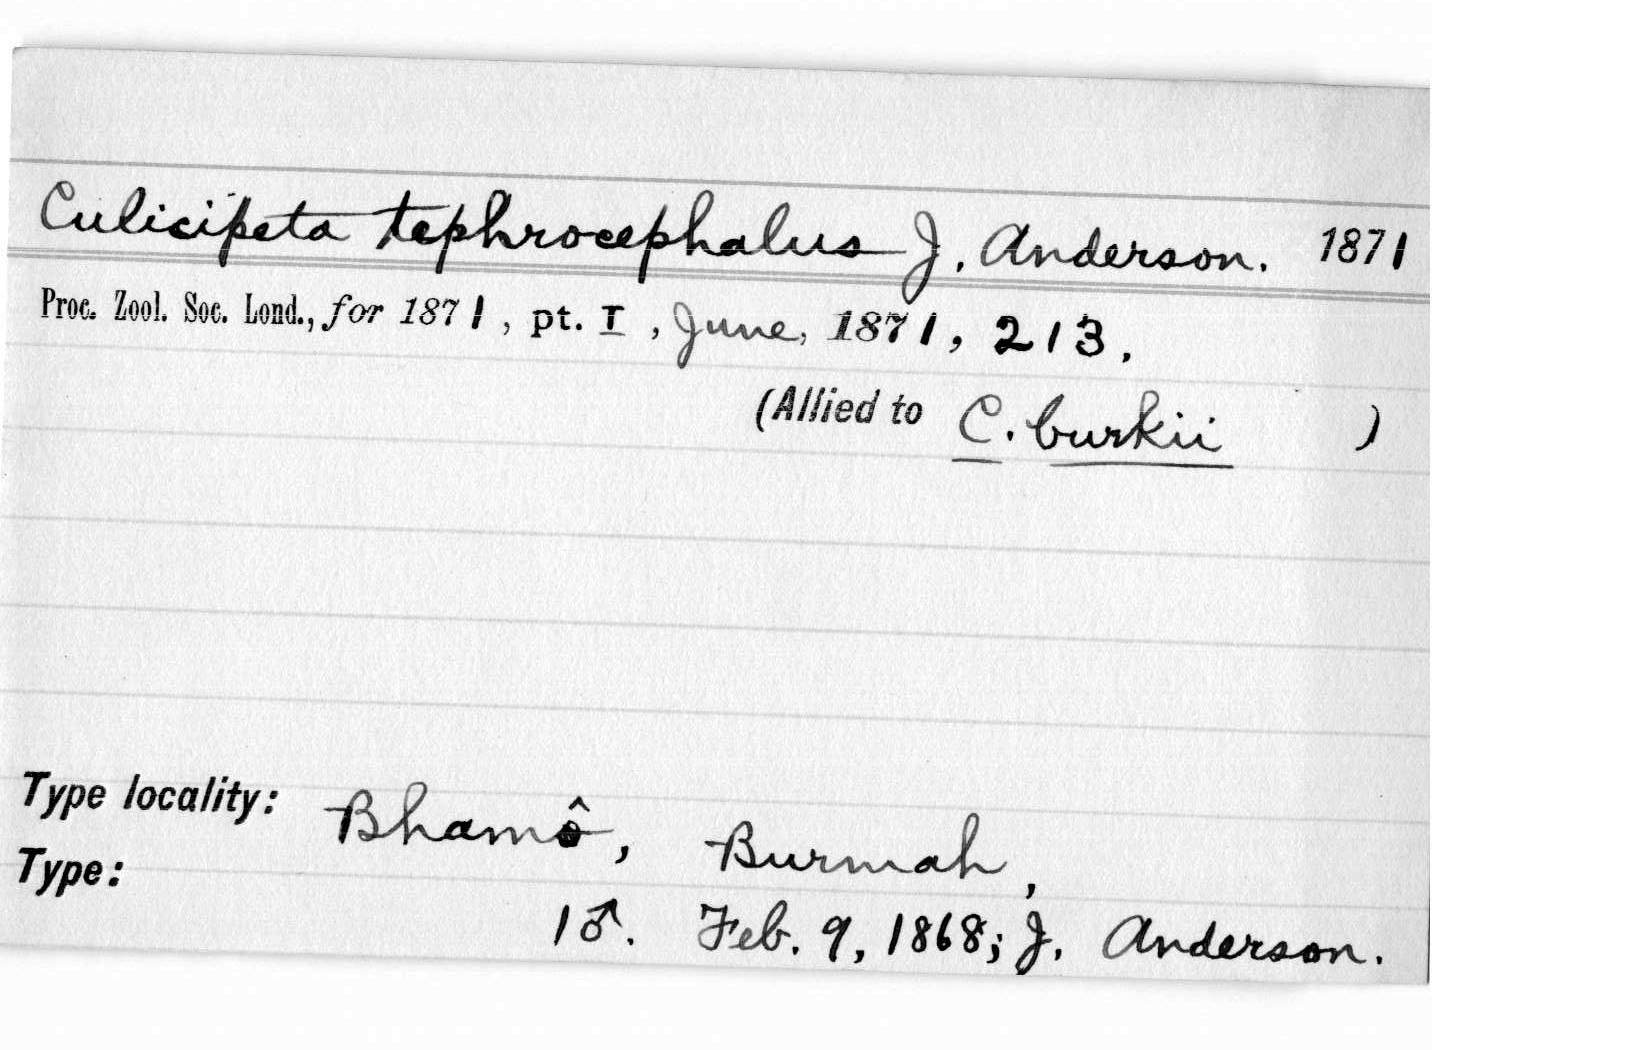 Culicipeta tephrocephalus J. Anderson. 1871
Proc. Zool. Soc. Lond., for 1871, pt. I, June, 1871, 213.
(Allied to C. burkii )
Type locality: Bhamô, Burmah,
Type:
1♂. Feb. 9, 1868; J. Anderson.